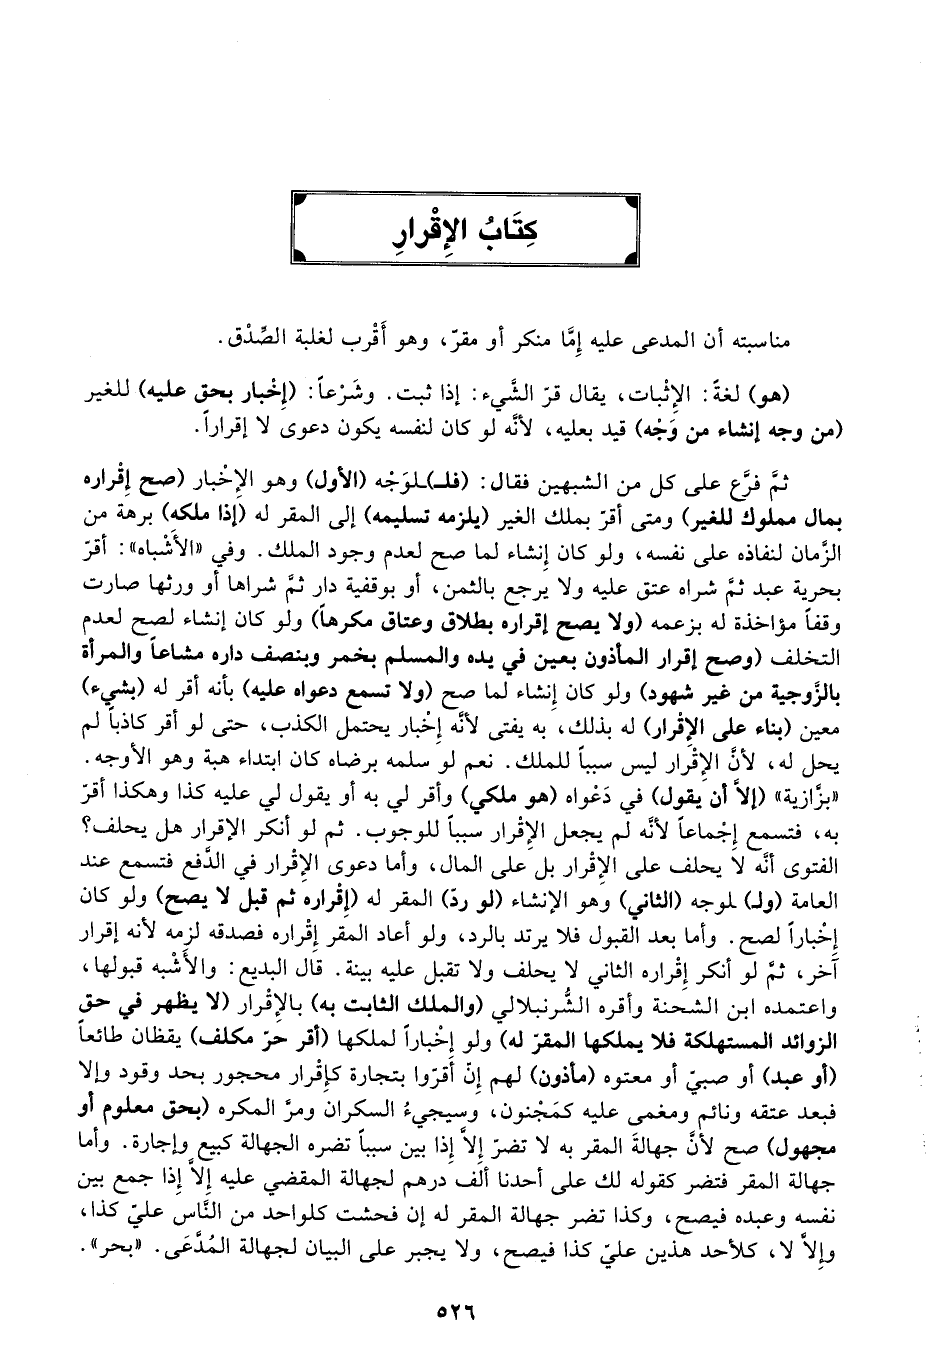 كِتَابُ الإِقْرارِ
مناسبته أن المدعى عليه إِمَّا منكر أو مقرّ، وهو أَقْرب لغلبة الصِّدْق.
(هو) لغةً: الإِثْبات، يقال قرّ الشَّيء: إذا ثبت. وشَرْعاً: (إخْبار بحق عليه) للغير
(من وجه إنشاء من وَجْه) قيد بعليه، لأنَّه لو كان لنفسه يكون دعوى لا إقراراً.
ثمَّ فرَّع على كل من الشبهين فقال: (فلـ)ـلوَجْه (الأول) وهو الإِخْبار (صح إقْراره
بمال مملوك للغير) ومتى أقرّ بملك الغير (يلزمه تسليمه) إلى المقر له (إذا ملكه) برهة من
الزَّمان لنفاذه على نفسه، ولو كان إنشاء لما صح لعدم وجود الملك. وفي «الأَشْباه»: أقرّ
بحرية عبد ثمَّ شراه عتق عليه ولا يرجع بالثمن، أو بوقفية دار ثمَّ شراها أو ورثها صارت
وقفاً مؤاخذة له بزعمه (ولا يصح إقراره بطلاق وعتاق مكرهاً) ولو كان إنشاء لصح لعدم
التخلف (وصح إقرار المأذون بعين في يده والمسلم بخمر وبنصف داره مشاعاً والمرأة
بالزَّوجية من غير شهود) ولو كان إنشاء لما صح (ولا تسمع دعواه عليه) بأنه أقر له (بشيء)
معين (بناء على الإِقْرار) له بذلك، به يفتى لأنَّه إخْبار يحتمل الكذب، حتى لو أقر كاذباً لم
يحل له، لأنَّ الإِقْرار ليس سبباً للملك. نعم لو سلمه برضاه كان ابتداء هبة وهو الأوجه.
«بزَّازية» (إلاَّ أن يقول) في دَعْواه (هو ملكي) وأقر لي به أو يقول لي عليه كذا وهكذا أقرّ
به، فتسمع إجْماعاً لأنَّه لم يجعل الإقْرار سبباً للوجوب. ثم لو أنكر الإقرار هل يحلف؟
الفتوى أنَّه لا يحلف على الإِقْرار بل على المال، وأما دعوى الإِقْرار في الدَّفع فتسمع عند
العامة (ولـ) ـلوجه (الثاني) وهو الإنشاء (لو ردّ) المقر له (إقْراره ثم قبل لا يصح) ولو كان
إخْباراً لصح. وأما بعد القبول فلا يرتد بالرد، ولو أعاد المقر إقْراره فصدقه لزمه لأنه إقرار
آخر، ثمَّ لو أنكر إقْراره الثاني لا يحلف ولا تقبل عليه بينة. قال البديع: والأَشْبه قبولها،
واعتمده ابن الشحنة وأقره الشُّرنبلالي (والملك الثابت به) بالإِقْرار (لا يظهر في حق
الزوائد المستهلكة فلا يملكها المقرّ له) ولو إخْباراً لملكها (أقر حرّ مكلف) يقظان طائعاً
(أو عبد) أو صبيّ أو معتوه (مأذون) لهم إنْ أقرّوا بتجارة كإقْرار محجور بحد وقود وإلا
فبعد عتقه ونائم ومغمى عليه كمَجْنون، وسيجيءُ السكران ومرَّ المكره (بحق معلوم أو
مجهول) صح لأنَّ جهالةَ المقر به لا تضرّ إلاَّ إذا بين سبباً تضره الجهالة كبيع وإجارة. وأما
جهالة المقر فتضر كقوله لك على أحدنا ألف درهم لجهالة المقضي عليه إلاَّ إذا جمع بين
نفسه وعبده فيصح، وكذا تضر جهالة المقر له إن فحشت كلواحد من النَّاس عليّ كذا،
وإلاَّ لا، كلأحد هذين عليّ كذا فيصح، ولا يجبر على البيان لجهالة المُدَّعَى. «بحر».
٥٢٦